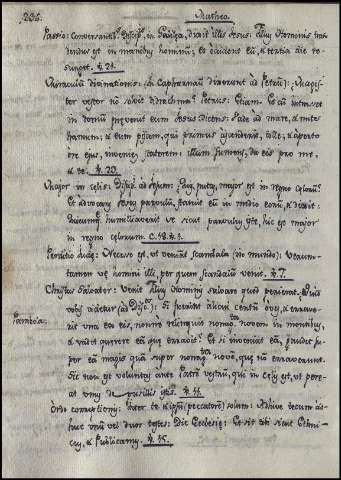 236. Matheo.
Passio: Conversantibus Discip. in Galilea, dixit illis Jesus: Filius Hominis tra
dendus est in manibus hominum; et occident eum, & tertia die re
surget. v. 21.
Miraculum didragmatis: in Capharnaum dixerunt ad Petrum: Magis
ter vester non solvit didrachma? Petrus: Etiam. Et cum intrasset
in domum prevenit eum Jesus dicens: Vade ad mare, & mitte
hamum; & eum piscem, qui primus ascenderit, tolle; & aperto
ore ejus, invenies staterem: illum sumens, da eis pro me,
& te.
Major in celis: Discip. ad Jesum: Quis, putas, major est in regno celorum?
Et advocans Jesus parvulum, statuit eum in medio eorum, & dixit:
Quicumque humiliaverit se sicut parvulus iste, hic est major
in regno celorum. C. 18. v. 1.
Necesse est, ut veniant scandala (in mundo): Verum
tamen ve homini illi, per quem scandalum venit. v. 7.
Christus Salvator: Venit Filius Hominis salvare quod perierat. Quid
Parabola: vobis videtur (ad Dis.): Si fuerint alicui centum oves, & errave
rit una ex eis, nonne relinquit nonaginta novem in montibus,
& vadit querere eam que erravit? Et si invenerit eam, gaudet su
per eam magis quam super nonaginta novem, que non erraverunt.
Sic non est voluntas ante Patrem vestrum, qui in celis est, ut pere
at unus de pusillis istis. v. 11.
Ordo correctionis: inter te & ipsum (peccatorem) solum: Adhibe tecum ad
huc unum vel duos testes: Dic Ecclesie: Et sit tibi sicut Ethni
cus, & Publicanus. v. 15.